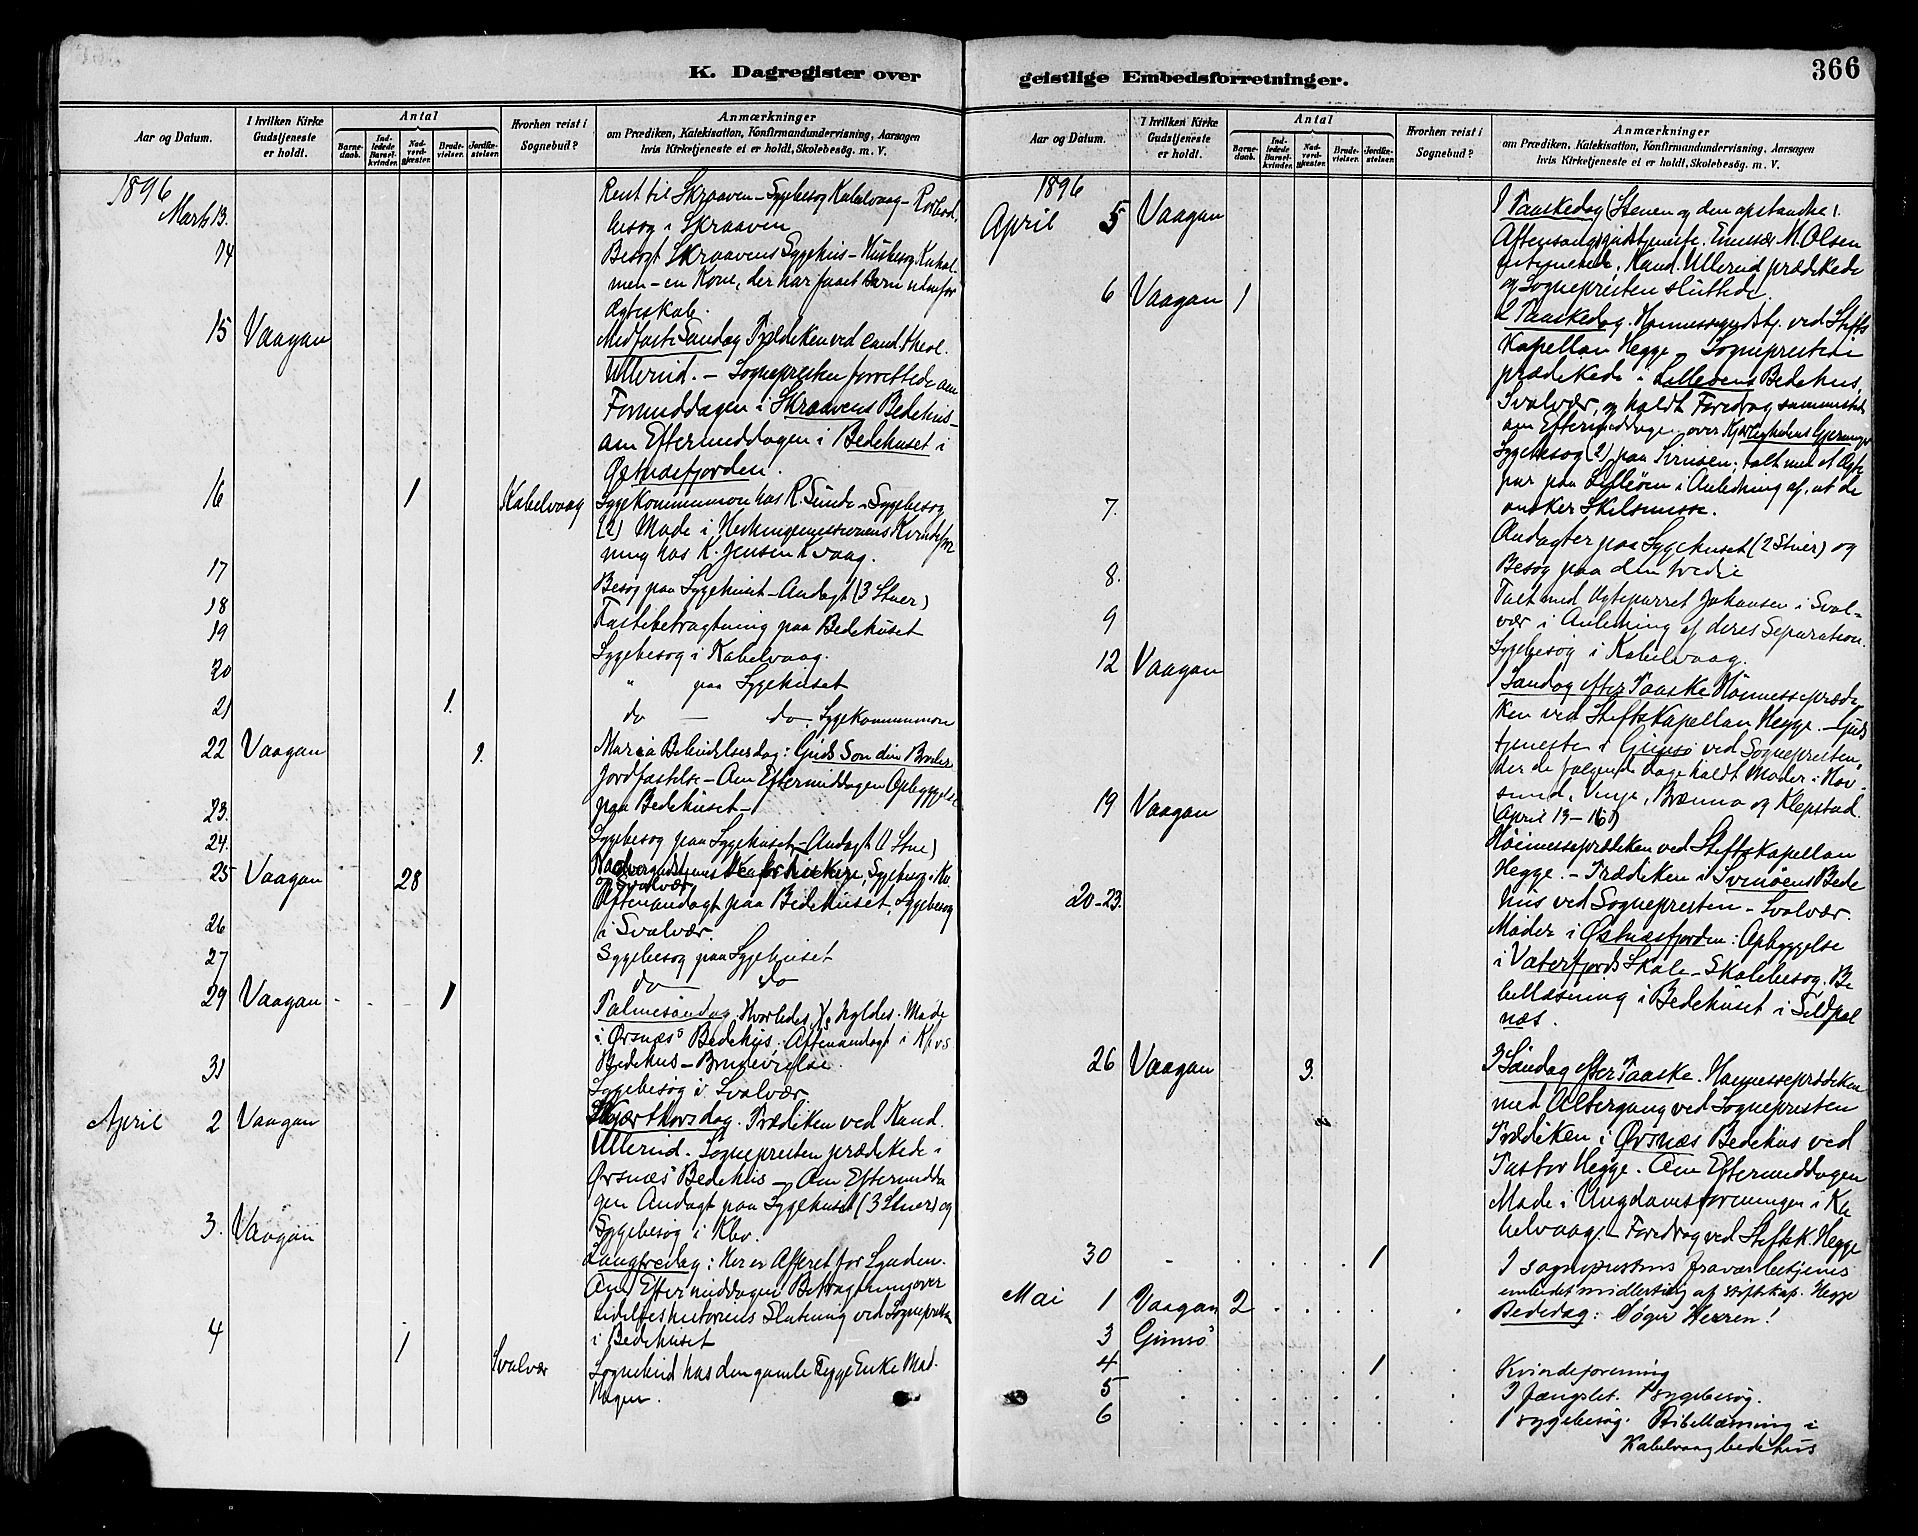 K. Dagregister over
Aar og Datum.
I hvilken Kirke Gudstjeneste er holdt.
Antal
Barne-daab.
Ind-ledede Barsel-kvinder.
Nad-verd-gjæster.
Brude-vielser.
Jordfæ-stelser.
Hvorhen reist i Sognebud?
Anmærkninger
om Prædiken, Katekisation, Konfirmandundervisning, Aarsagen
hvis Kirketjeneste ei er holdt, Skolebesøg. m. V.
1896
Marts 13.
Rent til Skraaven - Sygebesøg Kabelvaag -
besøg i Skraaven
14
Besøgt Skraavens Sygehus - Husbesøg
men - en Kone, der har faaet Barn udenfor
Ægteskab.
15 Vaagan
Midfaste Søndag Prædiken ved cand. theol.
Ullerud. - Sognepresten forrettede om
Formiddagen i Skraavens Bedehus -
om Eftermiddagen i Bedehuset i
Østnæsfjorden.
16 1 Kabelvaag
Sygekommunion hos R. Sunde - Sygebesøg
(2) Møde i Hedningemissionens Kvindefor
ning hos K. Jensen Kvaag.
17
Besøg paa Sygehuset - Andagt (3 Stuer)
18
Fastebetragtning paa Bedehuset
19
Sygebesøg i Kabelvaag.
20
" paa Sygehuset
21 1.
do — do - Sygekommunion
22 Vaagan 1.
Maria Bebudelsesdag: Guds Søn din Broder
Jordfæstelse - Om Eftermiddagen Opbyggelse
paa Bedehuset -
23.
Sygebesøg paa Sygehuset - Andagt (1 Stue)
24.
25 Vaagan 28
Nadvergudstjeneste for Fiskere, Sygebesøg i Ka
og Svolvær
Aftenandagt paa Bedehuset. Sygebesøg
26
i Svolvær.
27
Sygebesøg paa Sygehuset
do — do
29 Vaagan 1
Palmesøndag. Hvorledes X hyldes. Møde
i Ørsnæs' Bedehus. Aftenandagt i Kbvs
Bedehus - Brudevielse.
31
Sygebesøg i Svolvær.
April 2 Vaagan
Skjærthorsdag. Prædiken ved Kand.
Ullerud. Sognepresten prædikede i
Ørsnæs' Bedehus - Om Eftermidda
gen Andagt paa Sygehuset (3 Stuer) og
Sygebesøg i Kbv.
3. Vaagan
Langfredag: Her er Offeret for Synden.
Om Eftermiddagen Betragtning over
Lidelseshistoriens Slutning ved Sognepresten
i Bedehuset
4 1 Svolvær
Sognebud hos den gamle Enke Mad.
Hagen.
geistlige Embedsforretninger.
366
Aar og Datum.
I hvilken Kirke Gudstjeneste er holdt.
Antal
Barne-daab.
Ind-ledede Barsel-kvinder.
Nad-verd-gjæster.
Brude-vielser.
Jordfæ-stelser.
Hvorhen reist i Sognebud?
Anmærkninger
om Prædiken, Katekisation, Konfirmandundervisning, Aarsagen
hvis Kirketjeneste ei er holdt, Skolebesøg. m. V.
1896
April 5 Vaagan
1 Paaskedag (Stenen og den opstandne).
Aftensangsgudstjeneste. Emissær M. Olsen
Kand. Ullerud prædikede
og Sognepresten sluttede.
6 Vaagan 1
2 Paaskedag. Høimessegudstj. ved Stifts
Kapellan Hegge - Sognepresten
prædikede i Lilleøens Bedehus,
Svolvær, og holdt Foredrag sammesteds
om Eftermiddagen over Kjærlighedens Gjerninger
Sygebesøg (2) paa Svinøen; talt med et Ægte
par paa Lilleøen i Anledning af, at de
ønsker Skilsmisse.
7.
Andagter paa Sygehuset (2 Stuer) og
Besøg paa den tredie
8.
Talt med Ægteparret Johansen i Svol-
vær i Anledning af deres Separation.
9
Sygebesøg i Kabelvaag.
12 Vaagan
1 Søndag efter Paaske Høimesseprædi
ken ved Stiftskapellan Hegge. - Guds
tjeneste i Gimsø ved Sognepresten,
der de følgende Dage holdt Møder i Hov-
sund, Vinje, Brenna og Klepstad.
(April 13 - 16)
19 Vaagan
Høimesseprædiken ved Stiftskapellan
Hegge. - Prædiken i Svinøens Bede
hus ved Sognepresten - Svolvær.
20-23.
Møder i Østnæsfjorden: Opbyggelse
i Vaterfjords Skole - Skolebesøg. Bi
bellæsning i Bedehuset i Sildpol
næs.
26 Vaagan 3.
3 Søndag efter Paaske. Høimesseprædiken
med Altergang ved Sognepresten
Prædiken i Ørsnæs Bedehus ved
Pastor Hegge. Om Eftermiddagen
Møde i Ungdomsforeningen i Ka
belvaag. - Foredrag ved Stiftsk. Hegge
30 1
I sogneprestens fravær betjenes
embedet midlertidig af stiftskap. Hegge
Mai 1 Vaagan 2
Bededag: Søger Herren!
3 Gimsø
4 1
Kvindeforening
5
I fængslet. 1 sygebesøg.
6
1 sygebesøg. Bibellæsning i
Kabelvaag bedehus